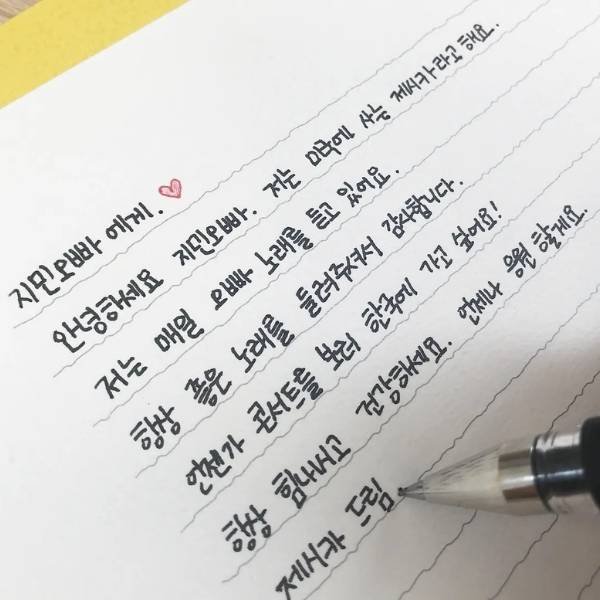 지민오빠 에게.♡
안녕하세요 지민오빠. 저는 미국에 사는 제시카라고 해요.
저는 매일 오빠 노래를 듣고 있어요.
항상 좋은 노래를 들려주셔서 감사합니다.
언젠가 콘서트를 보러 한국에 가고 싶어요!
항상 힘내시고 건강하세요. 언제나 응원 할게요.
제시카 드림